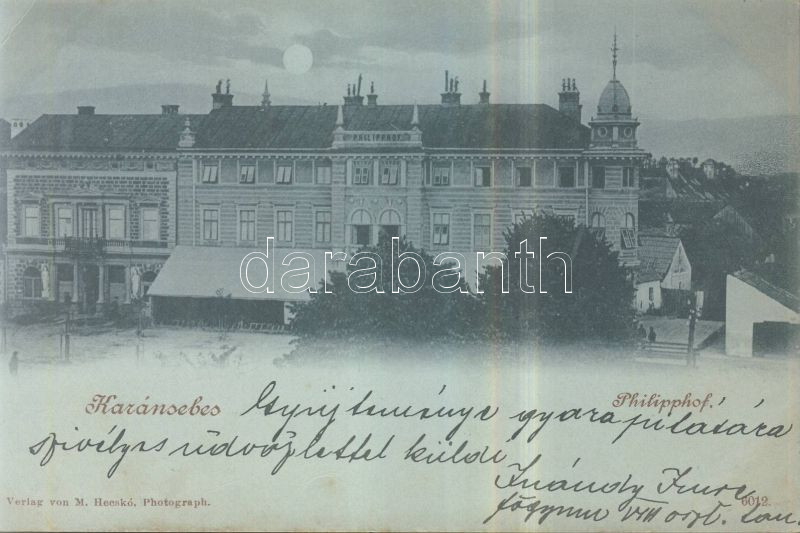 PHILIPPHOF
darabanth
Karánsebes
Philipphof.
Gyüjteménye gyarapulására
szivélyes üdvözlettel küldi
Imre
főgymn VIII oszt. tan.
Verlag von M. Hecskó, Photograph.
6012.